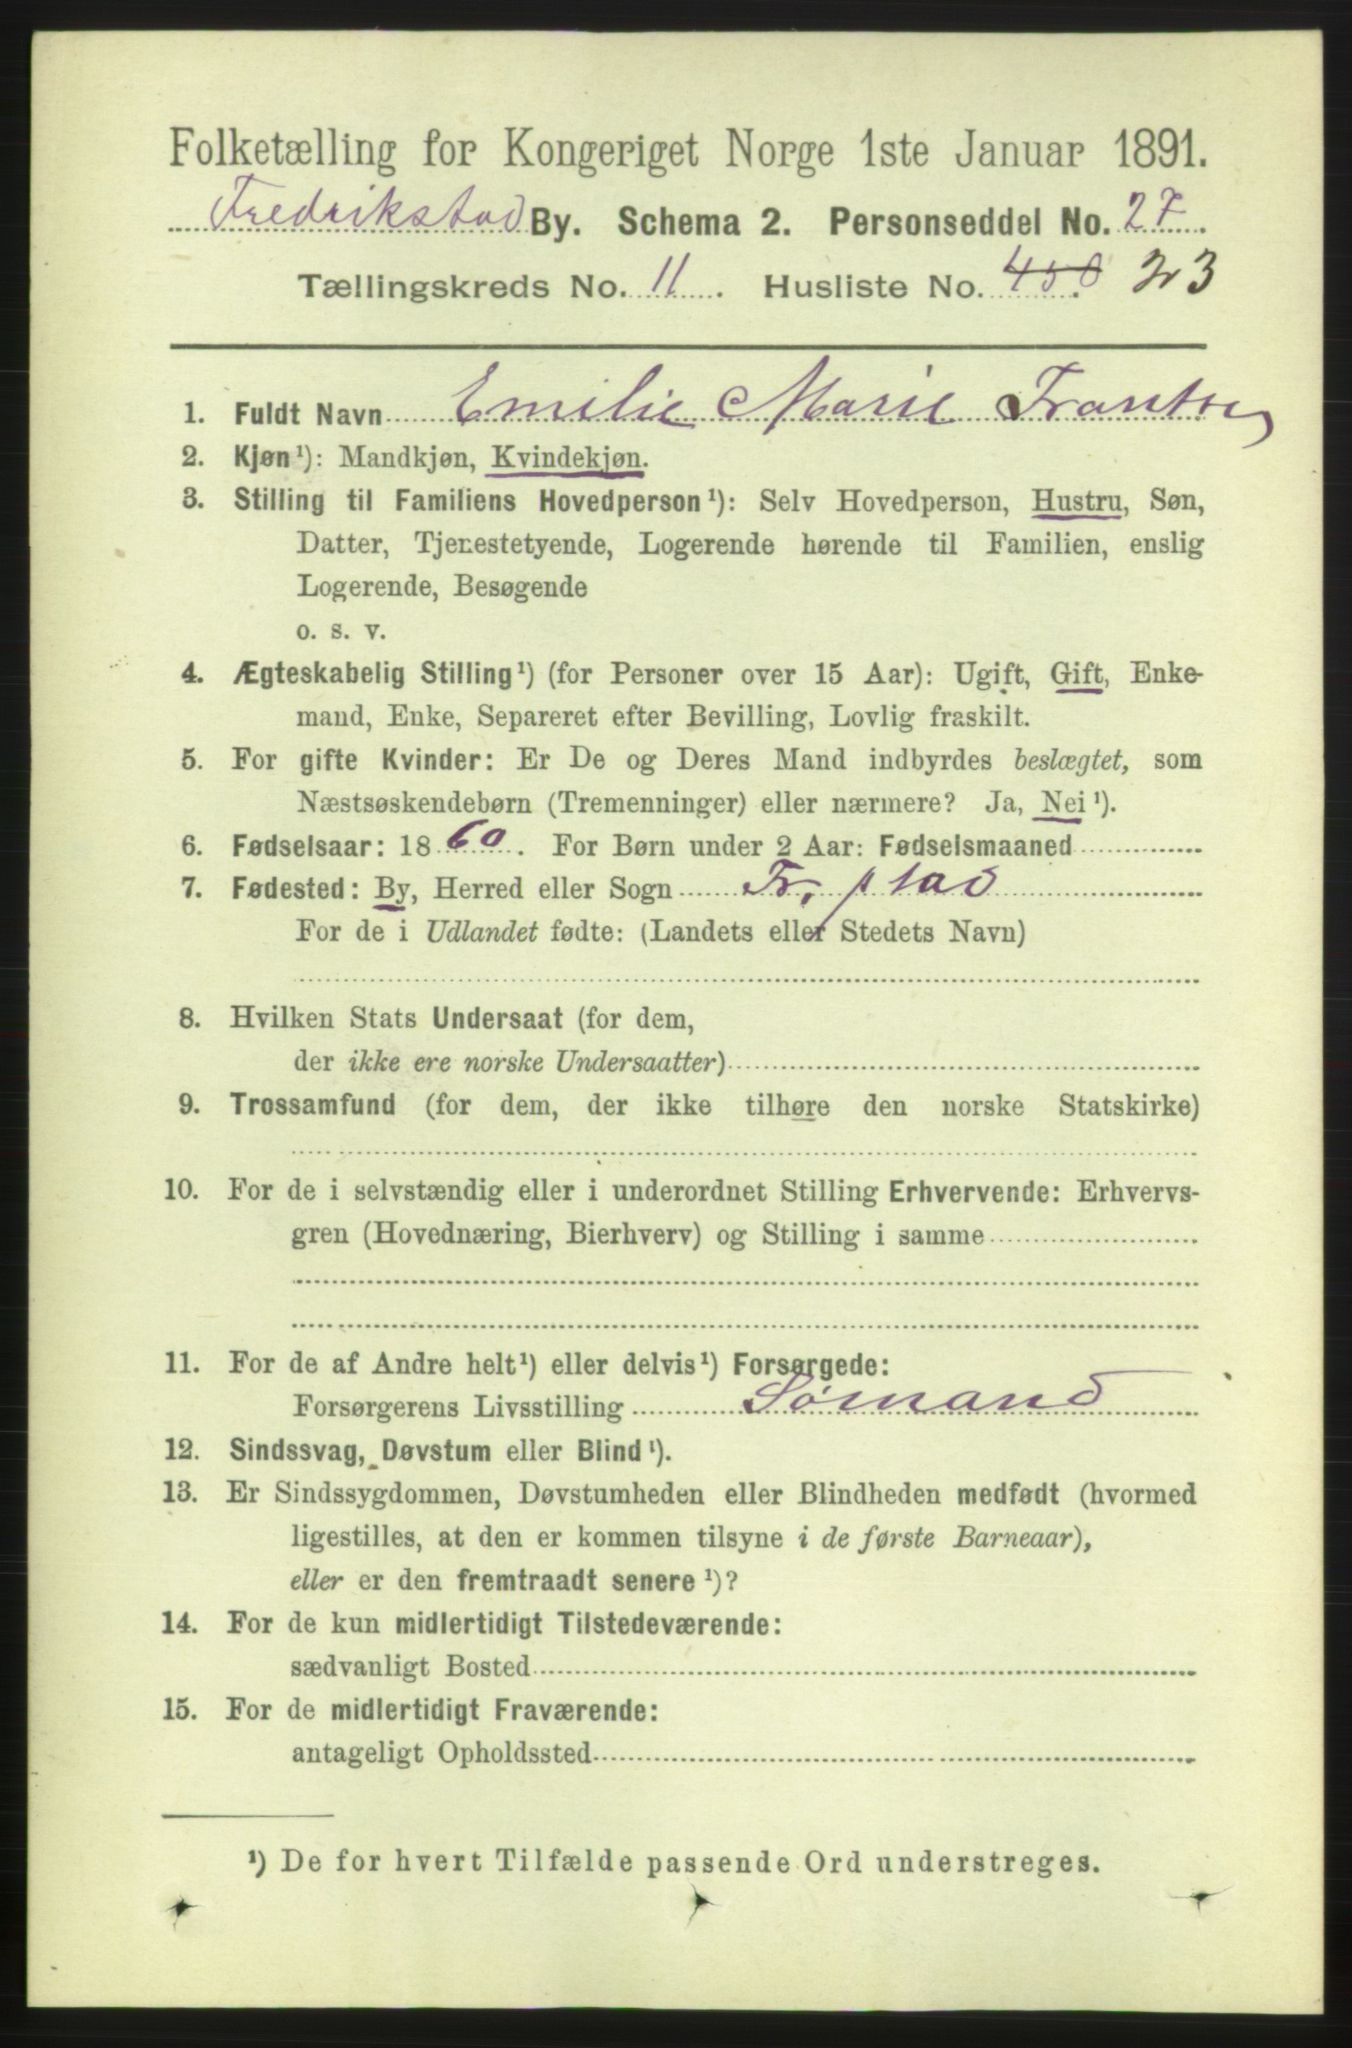 Folketælling for Kongeriget Norge 1ste Januar 1891.
Fredrikstad By. Schema 2. Personseddel No. 27.
Tællingskreds No. 11. Husliste No. 450. 23
1. Fuldt Navn Emilie Marie
2. Kjøn¹): Mandkjøn, Kvindekjøn.
3. Stilling til Familiens Hovedperson¹): Selv Hovedperson, Hustru, Søn,
Datter, Tjenestetyende, Logerende hørende til Familien, enslig
Logerende, Besøgende
o. s. v.
4. Ægteskabelig Stilling¹) (for Personer over 15 Aar): Ugift, Gift, Enke-
mand, Enke, Separeret efter Bevilling, Lovlig fraskilt.
5. For gifte Kvinder: Er De og Deres Mand indbyrdes beslægtet, som
Næstsøskendebørn (Tremenninger) eller nærmere? Ja, Nei¹).
6. Fødselsaar: 1860. For Børn under 2 Aar: Fødselsmaaned
7. Fødested: By, Herred eller Sogn Fr. stad
For de i Udlandet fødte: (Landets eller Stedets Navn)
8. Hvilken Stats Undersaat (for dem,
der ikke ere norske Undersaatter)
9. Trossamfund (for dem, der ikke tilhøre den norske Statskirke)
10. For de i selvstændig eller i underordnet Stilling Erhvervende: Erhvervs-
gren (Hovednæring, Bierhverv) og Stilling i samme
11. For de af Andre helt¹) eller delvis¹) Forsørgede:
Forsørgerens Livsstilling Sømand
12. Sindssvag, Døvstum eller Blind¹).
13. Er Sindssygdommen, Døvstumheden eller Blindheden medfødt (hvormed
ligestilles, at den er kommen tilsyne i de første Barneaar),
eller er den fremtraadt senere¹)?
14. For de kun midlertidigt Tilstedeværende:
sædvanligt Bosted
15. For de midlertidigt Fraværende:
antageligt Opholdssted
¹) De for hvert Tilfælde passende Ord understreges.